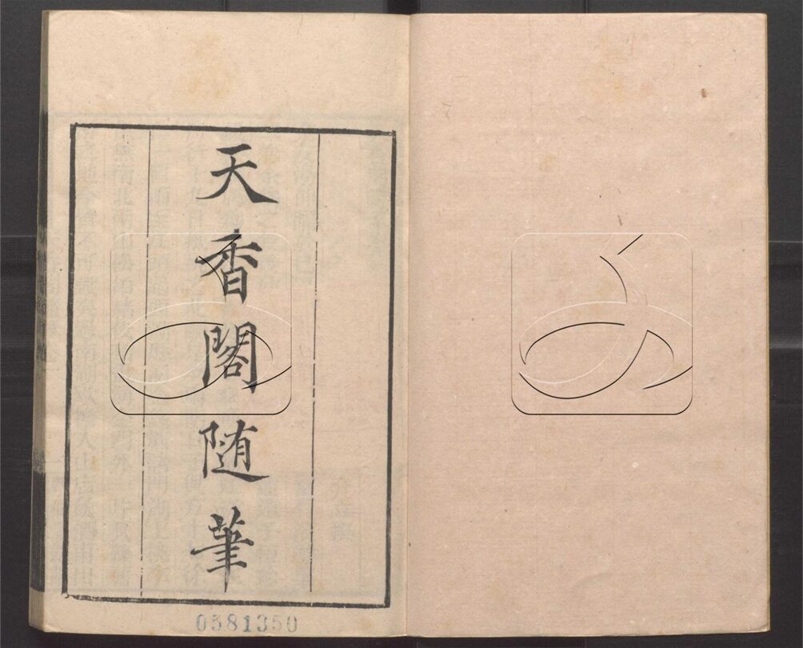 天香閣随筆
0581350